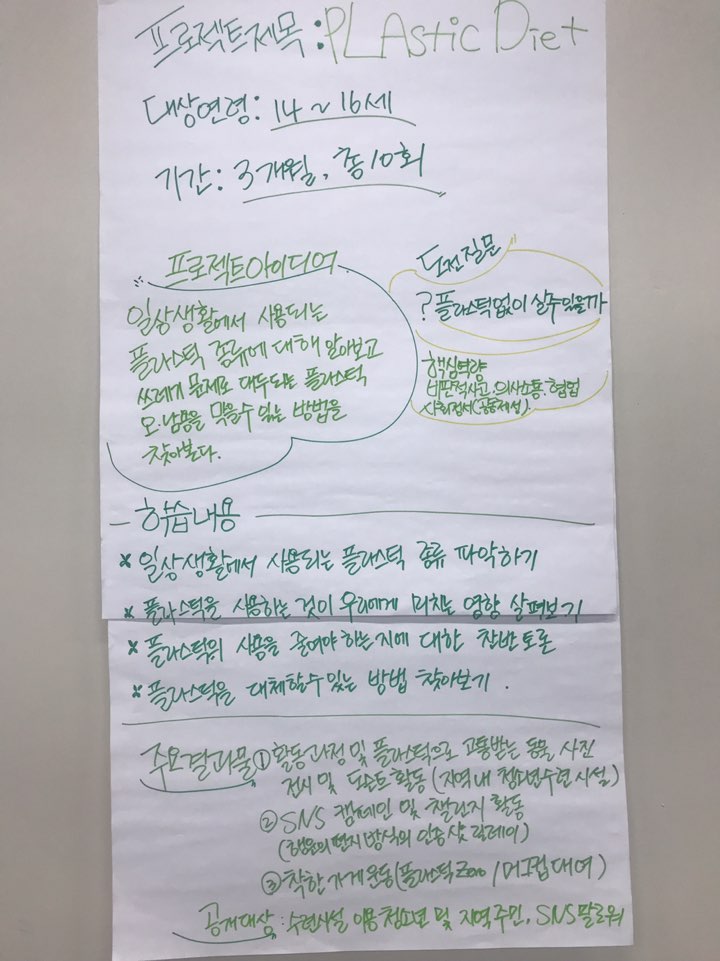 프로젝트제목 : PLAstic Diet
대상연령: 14 ~ 16세
기간: 3개월, 총10회
프로젝트아이디어
일상생활에서 사용되는
플라스틱 종류에 대해 알아보고
쓰레기 문제로 대두되는 플라스틱
오·남용을 막을수 있는 방법을
찾아본다.
도전질문
? 플라스틱없이 살수있을까
핵심역량
비판적사고, 의사소통, 협업
사회정서(공동체성)
학습내용
* 일상생활에서 사용되는 플라스틱 종류 파악하기
* 플라스틱을 사용하는 것이 우리에게 미치는 영향 살펴보기
* 플라스틱의 사용을 줄여야 하는지에 대한 찬반토론
* 플라스틱을 대체할수있는 방법 찾아보기.
주요결과물 ① 활동과정 및 플라스틱으로 고통받는 동물 사진
전시 및 도슨트 활동 (지역내 청소년수련시설)
② SNS 캠페인 및 챌린지 활동
(행운의편지 방식의 인증샷 릴레이)
③ 착한가게운동(플라스틱Zero / 머그컵대여)
공개대상 : 수련시설 이용 청소년 및 지역주민, SNS팔로워